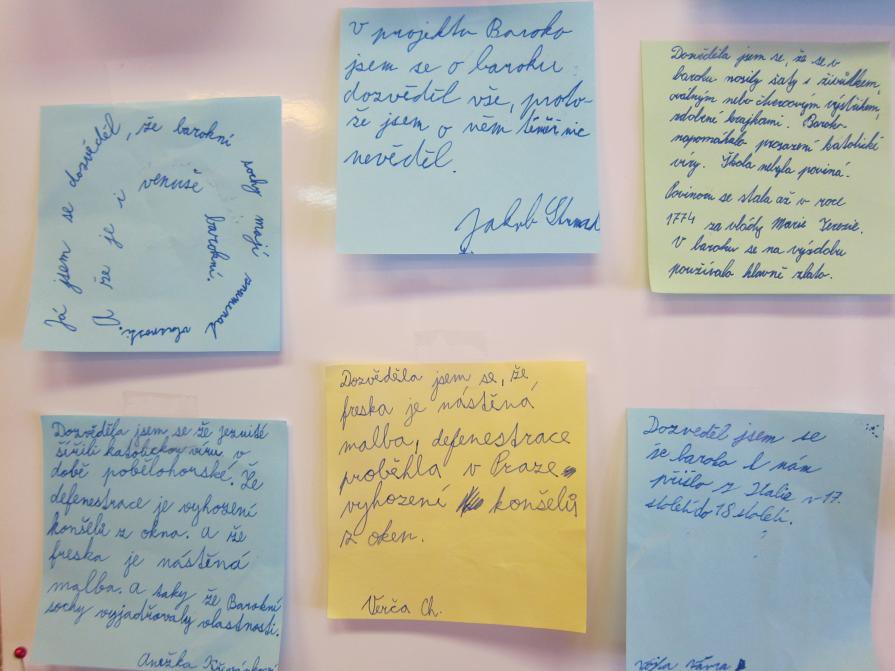 V projektu Baroko
jsem se o baroku
dozvěděl vše, proto-
že jsem o něm téměř nic
nevěděl.
Jakub
Dozvěděla jsem se, že se v
baroku nosily šaty s živůtkem,
oválným nebo čtvercovým výstřihem,
zdobené krajkami. Baroko
napomáhalo prosazení katolické
víry. Škola nebyla poviná.
Povinou se stala až v roce
1774 za vlády Marie Terezie.
V baroku se na výzdobu
používalo hlavně zlato.
Já jsem se dozvěděl, že barokní
sochy mají znamenat
vlastnosti.
A že je i venuše
barokní.
Dozvěděla jsem se že jezuité
šířili katolickou víru v
době pobělohorské. Že
defenestrace je vyhození
konšelů z okna. a že
freska je nástěná
malba. a taky že Barokní
sochy vyjadřovaly vlastnosti.
Anežka
Dozvěděla jsem se, že
freska je nástěná
malba, defenestrace
proběhla v Praze
vyhození konšelů
z oken.
Verča Ch.
Dozveděl jsem se
že baroko k nám
přišlo z Italie v 17.
století do 18 století.
Vojta Vávra